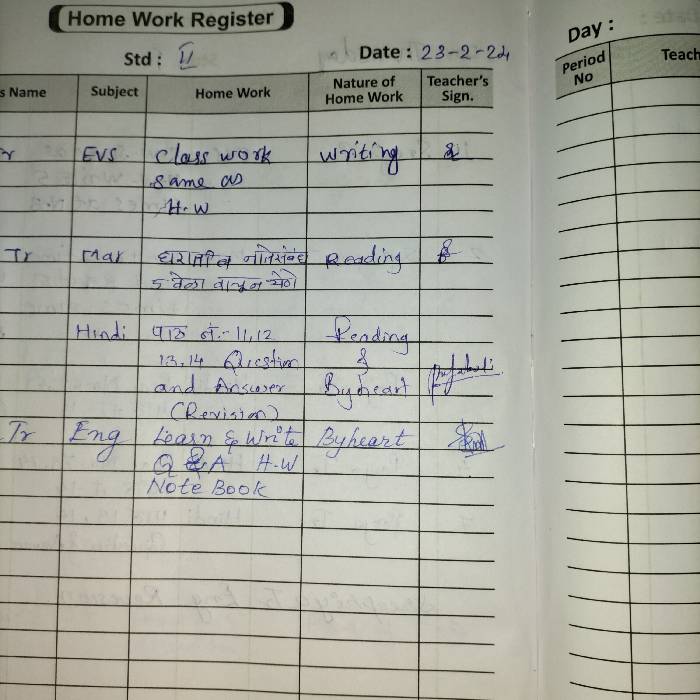 Home Work Register
Std : II Date : 23-2-24
s Name Subject Home Work Nature of Home Work Teacher's Sign.
r EVS. Class work Writing
same as
H.W
Tr Mar घरातील नातेसंबंध Reading
5 वेळा वाचून येणे
Hindi पाठ नं.- 11,12 Reading
13,14 Question &
and Answer Byheart
(Revision)
Tr Eng Learn & Write Byheart
Q & A H.W
Note Book
Day :
Period No Teach